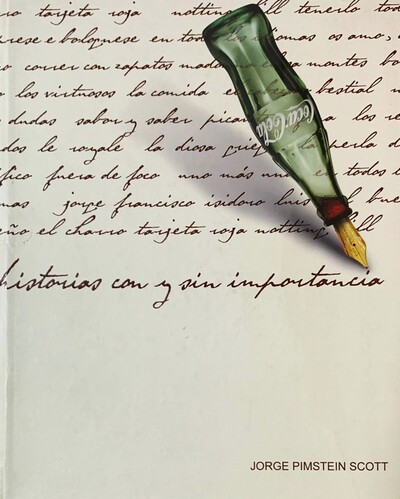 tarjeta roja notting hill tenerlo todo
e boloñese en todos los idiomas os amo,
correr con zapatos madona la montes
los virtuosos la comida el bestial
dudas sabor y saber a los
le royale la diosa la perla
fuera de foco uno más uno en todos
jorge francisco isidoro luis el
el charro tarjeta roja notting hill
Coca-Cola
historias con y sin importancia
JORGE PIMSTEIN SCOTT